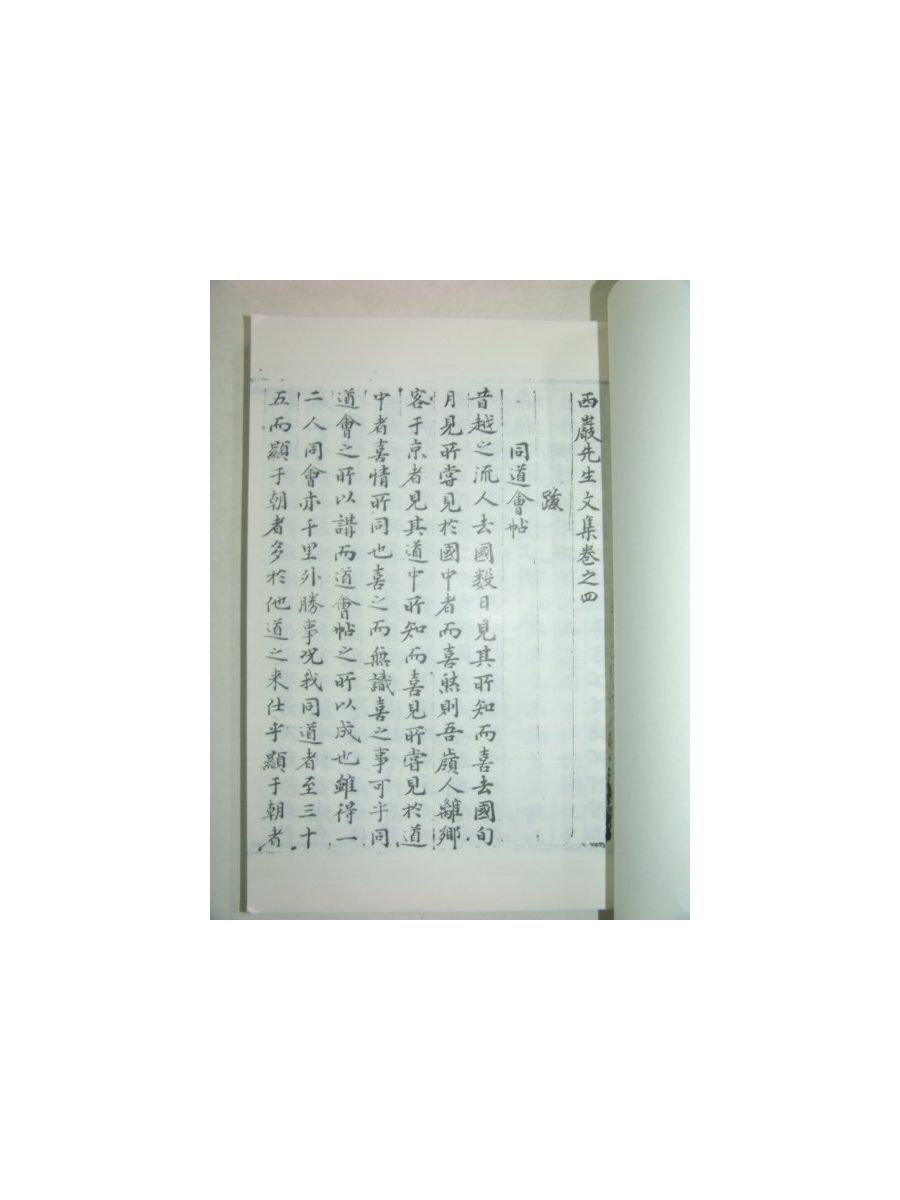 西巖先生文集卷之四
跋
同道會帖
昔越之流人去國數日見其所知而喜去國旬
月見所嘗見於國中者而喜然則吾嶺人離鄉
客于京者見其道中所知而喜見所嘗見於道
中者喜情所同也喜之而無識喜之事可乎同
道會之所以講而道會帖之所以成也雖得一
二人同會亦千里外勝事况我同道者至三十
五而顯于朝者多於他道之来仕乎顯于朝者